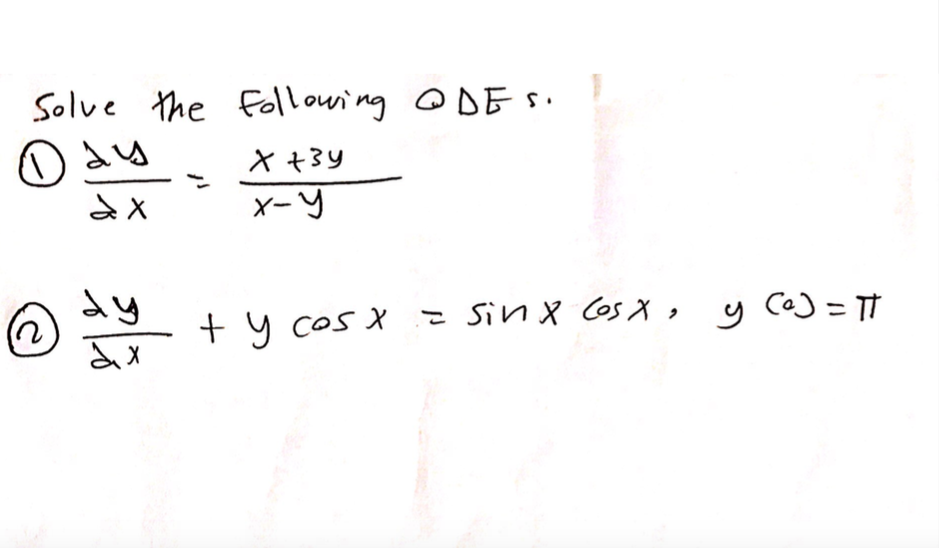 Solve the Following ODEs.
① dy/dx = x+3y/x-y
② dy/dx + y cos x = sin x cos x, y(0) = π